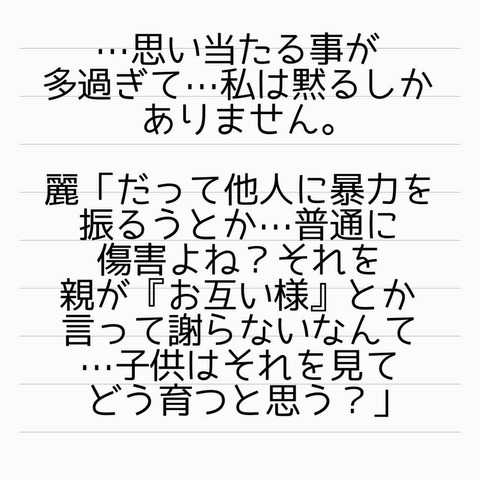 …思い当たる事が
多過ぎて…私は黙るしか
ありません。
麗「だって他人に暴力を
振るうとか…普通に
傷害よね？それを
親が『お互い様』とか
言って謝らないなんて
…子供はそれを見て
どう育つと思う？」